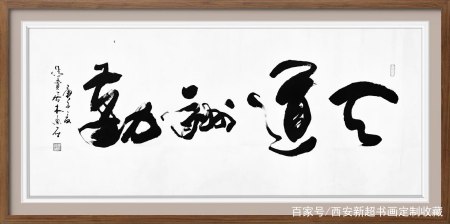 天道酬勤
百家号/西安新超书画定制收藏